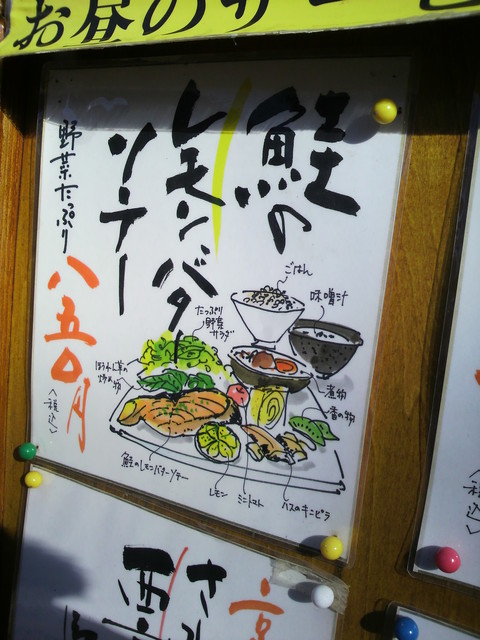 お昼のサービ
鮭の
レモンバター
ソテー
野菜たっぷり
八五〇円
〈税込〉
ごはん
味噌汁
たっぷり
野菜
サラダ
ほうれん草の
炒め物
煮物
香の物
鮭のレモンバターソテー
レモン
ミニトマト
ハスのキンピラ
〈税込〉
さ
京